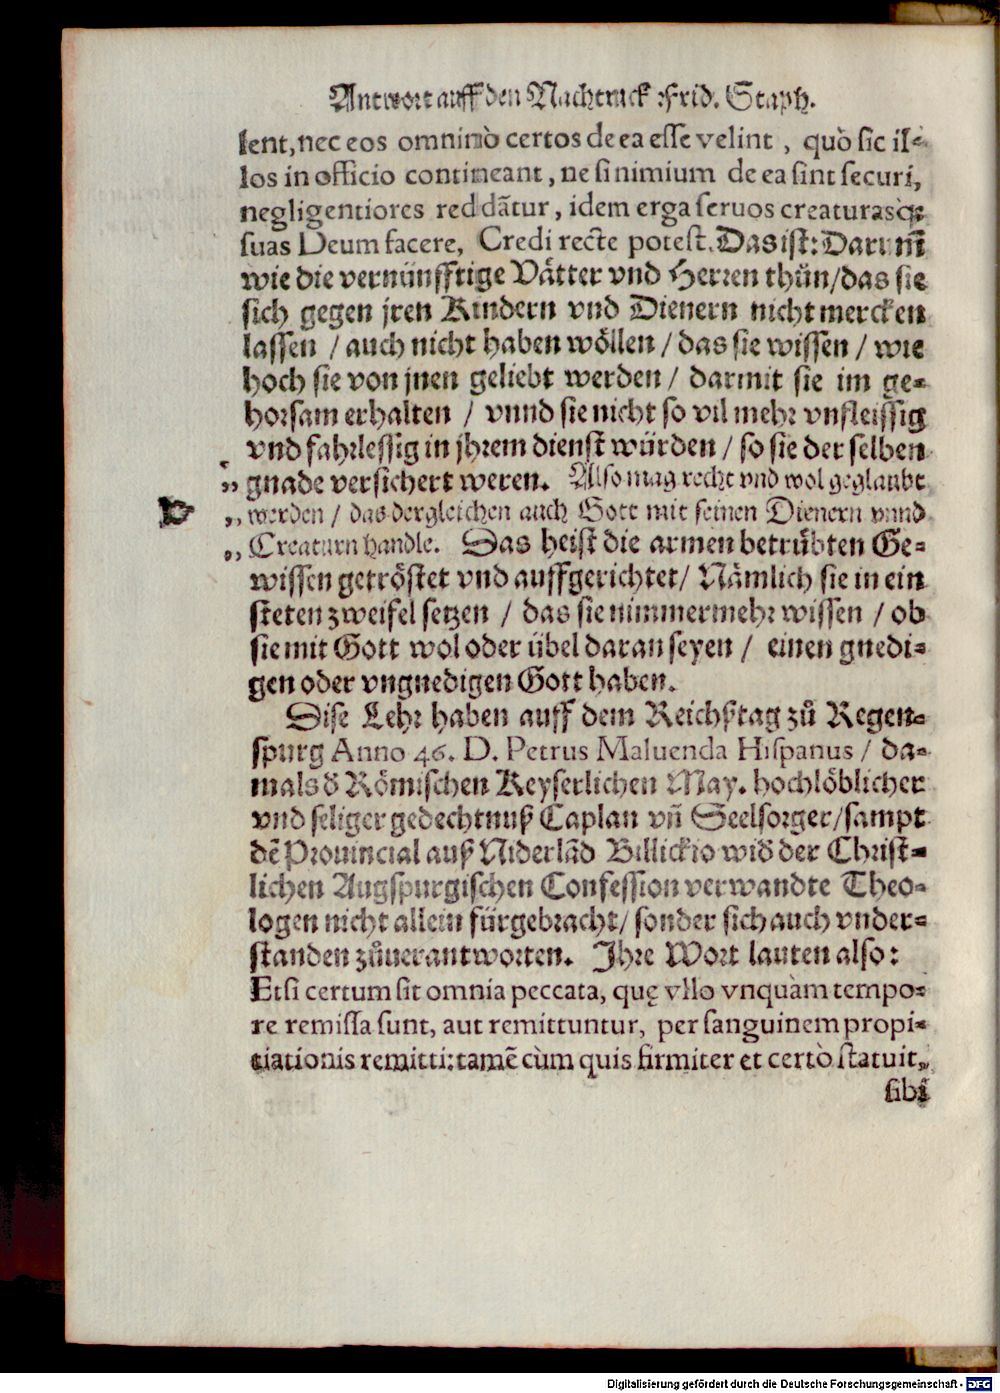 Antwort auff den Nachtruck Frid. Staph.
lent, nec eos omninò certos de ea esse velint, quò sic il-
los in officio contineant, ne si nimium de ea sint securi,
negligentiores reddātur, idem erga seruos creaturasq;
suas Deum facere, Credi recte potest. Das ist: Darum̄
wie die vernünfftige Vätter vnd Herren thůn/das sie
sich gegen jren Kindern vnd Dienern nicht mercken
lassen / auch nicht haben wöllen / das sie wissen / wie
hoch sie von jnen geliebt werden / darmit sie im ge-
horsam erhalten / vnnd sie nicht so vil mehr vnfleissig
vnd fahrlessig in jhrem dienst würden / so sie der selben
„ gnade versichert weren. Also mag recht vnd wol geglaubt
„ werden / das dergleichen auch Gott mit seinen Dienern vnnd
„ Creaturn handle. Das heist die armen betrübten Ge-
wissen getröstet vnd auffgerichtet/ Nämlich sie in ein
steten zweifel setzen / das sie nimmermehr wissen / ob
sie mit Gott wol oder übel daran seyen / einen gnedi-
gen oder vngnedigen Gott haben.
Dise Lehr haben auff dem Reichßtag zů Regen-
spurg Anno 46. D. Petrus Maluenda Hispanus / da-
mals d̄ Römischen Keyserlichen May. hochlöblicher
vnd seliger gedechtnuß Caplan vn̄ Seelsorger/sampt
dē Prouincial auß Niderlād Billickio wid̄ der Christ-
lichen Augspurgischen Confession verwandte Theo-
logen nicht allein fürgebracht/ sonder sich auch vnder-
standen zůuerantworten. Jhre Wort lauten also:
Etsi certum sit omnia peccata, quę vllo vnquàm tempo-
re remissa sunt, aut remittuntur, per sanguinem propi-
tiationis remitti: tamē cùm quis firmiter et certò statuit,
sibi
Digitalisierung gefördert durch die Deutsche Forschungsgemeinschaft - DFG